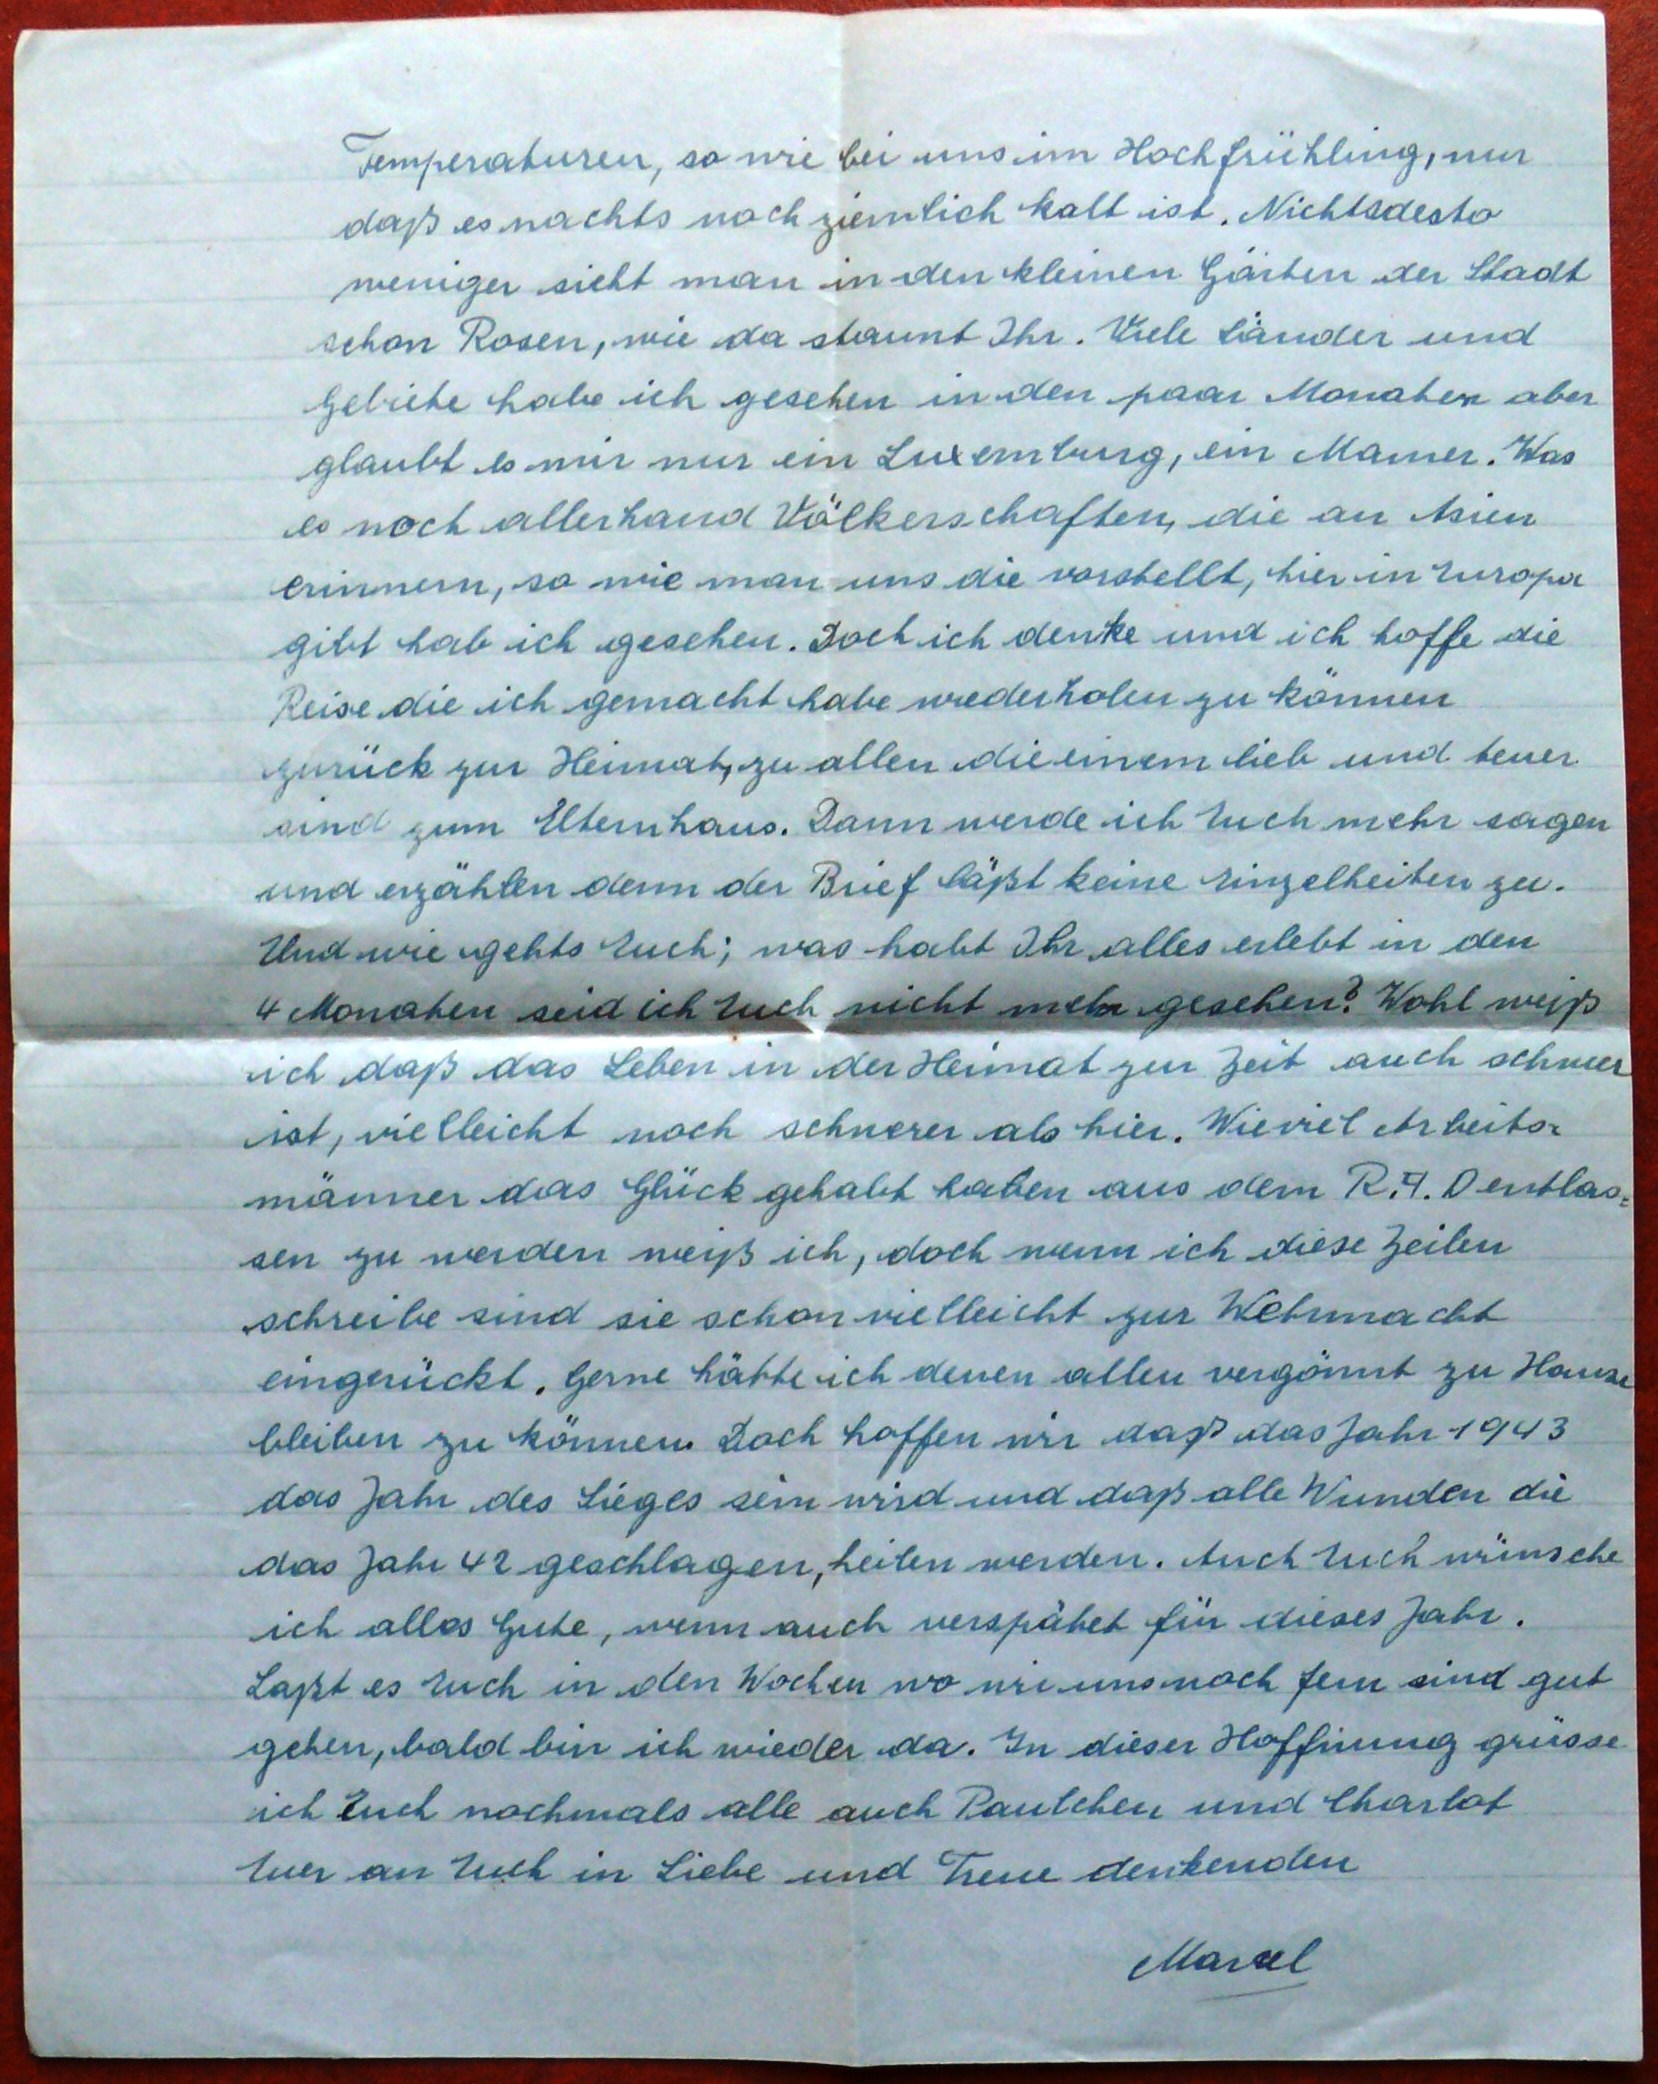 Temperaturen, so wie bei uns im Hochfrühling, nur
daß es nachts noch ziemlich kalt ist. Nichtsdesto
weniger sieht man in den kleinen Gärten der Stadt
schon Rosen, wie da staunt Ihr. Viele Länder und
Gebiete habe ich gesehen in den paar Monaten aber
glaubt es mir nur ein Luxemburg, ein Mamer. Was
es noch allerhand Völkerschaften, die an Asien
erinnern, so wie man uns die vorstellt, hier in Europa
gibt hab ich gesehen. Doch ich denke und ich hoffe die
Reise die ich gemacht habe wiederholen zu können
zurück zur Heimat, zu allen die einem lieb und teuer
sind zum Elternhaus. Dann werde ich Euch mehr sagen
und erzählen denn der Brief läßt keine Einzelheiten zu.
Und wie gehts Euch; was habt Ihr alles erlebt in den
4 Monaten seid ich Euch nicht mehr gesehen? Wohl weiß
ich daß das Leben in der Heimat zur Zeit auch schwer
ist, vielleicht noch schwerer als hier. Wieviel Arbeits=
männer das Glück gehabt haben aus dem R.A.D entlas=
sen zu werden weiß ich, doch wenn ich diese Zeilen
schreibe sind sie schon vielleicht zur Wehrmacht
eingerückt. Gerne hätte ich denen allen vergönnt zu Hause
bleiben zu können. Doch hoffen wir daß das Jahr 1943
das Jahr des Sieges sein wird und daß alle Wunden die
das Jahr 42 geschlagen, heilen werden. Auch Euch wünsche
ich alles Gute, wenn auch verspätet für dieses Jahr.
Laßt es Euch in den Wochen wo wir uns noch fern sind gut
gehen, bald bin ich wieder da. In dieser Hoffnung grüsse
ich Euch nochmals alle auch Paulchen und Charlot
Euer an Euch in Liebe und Treue denkenden
Marcel